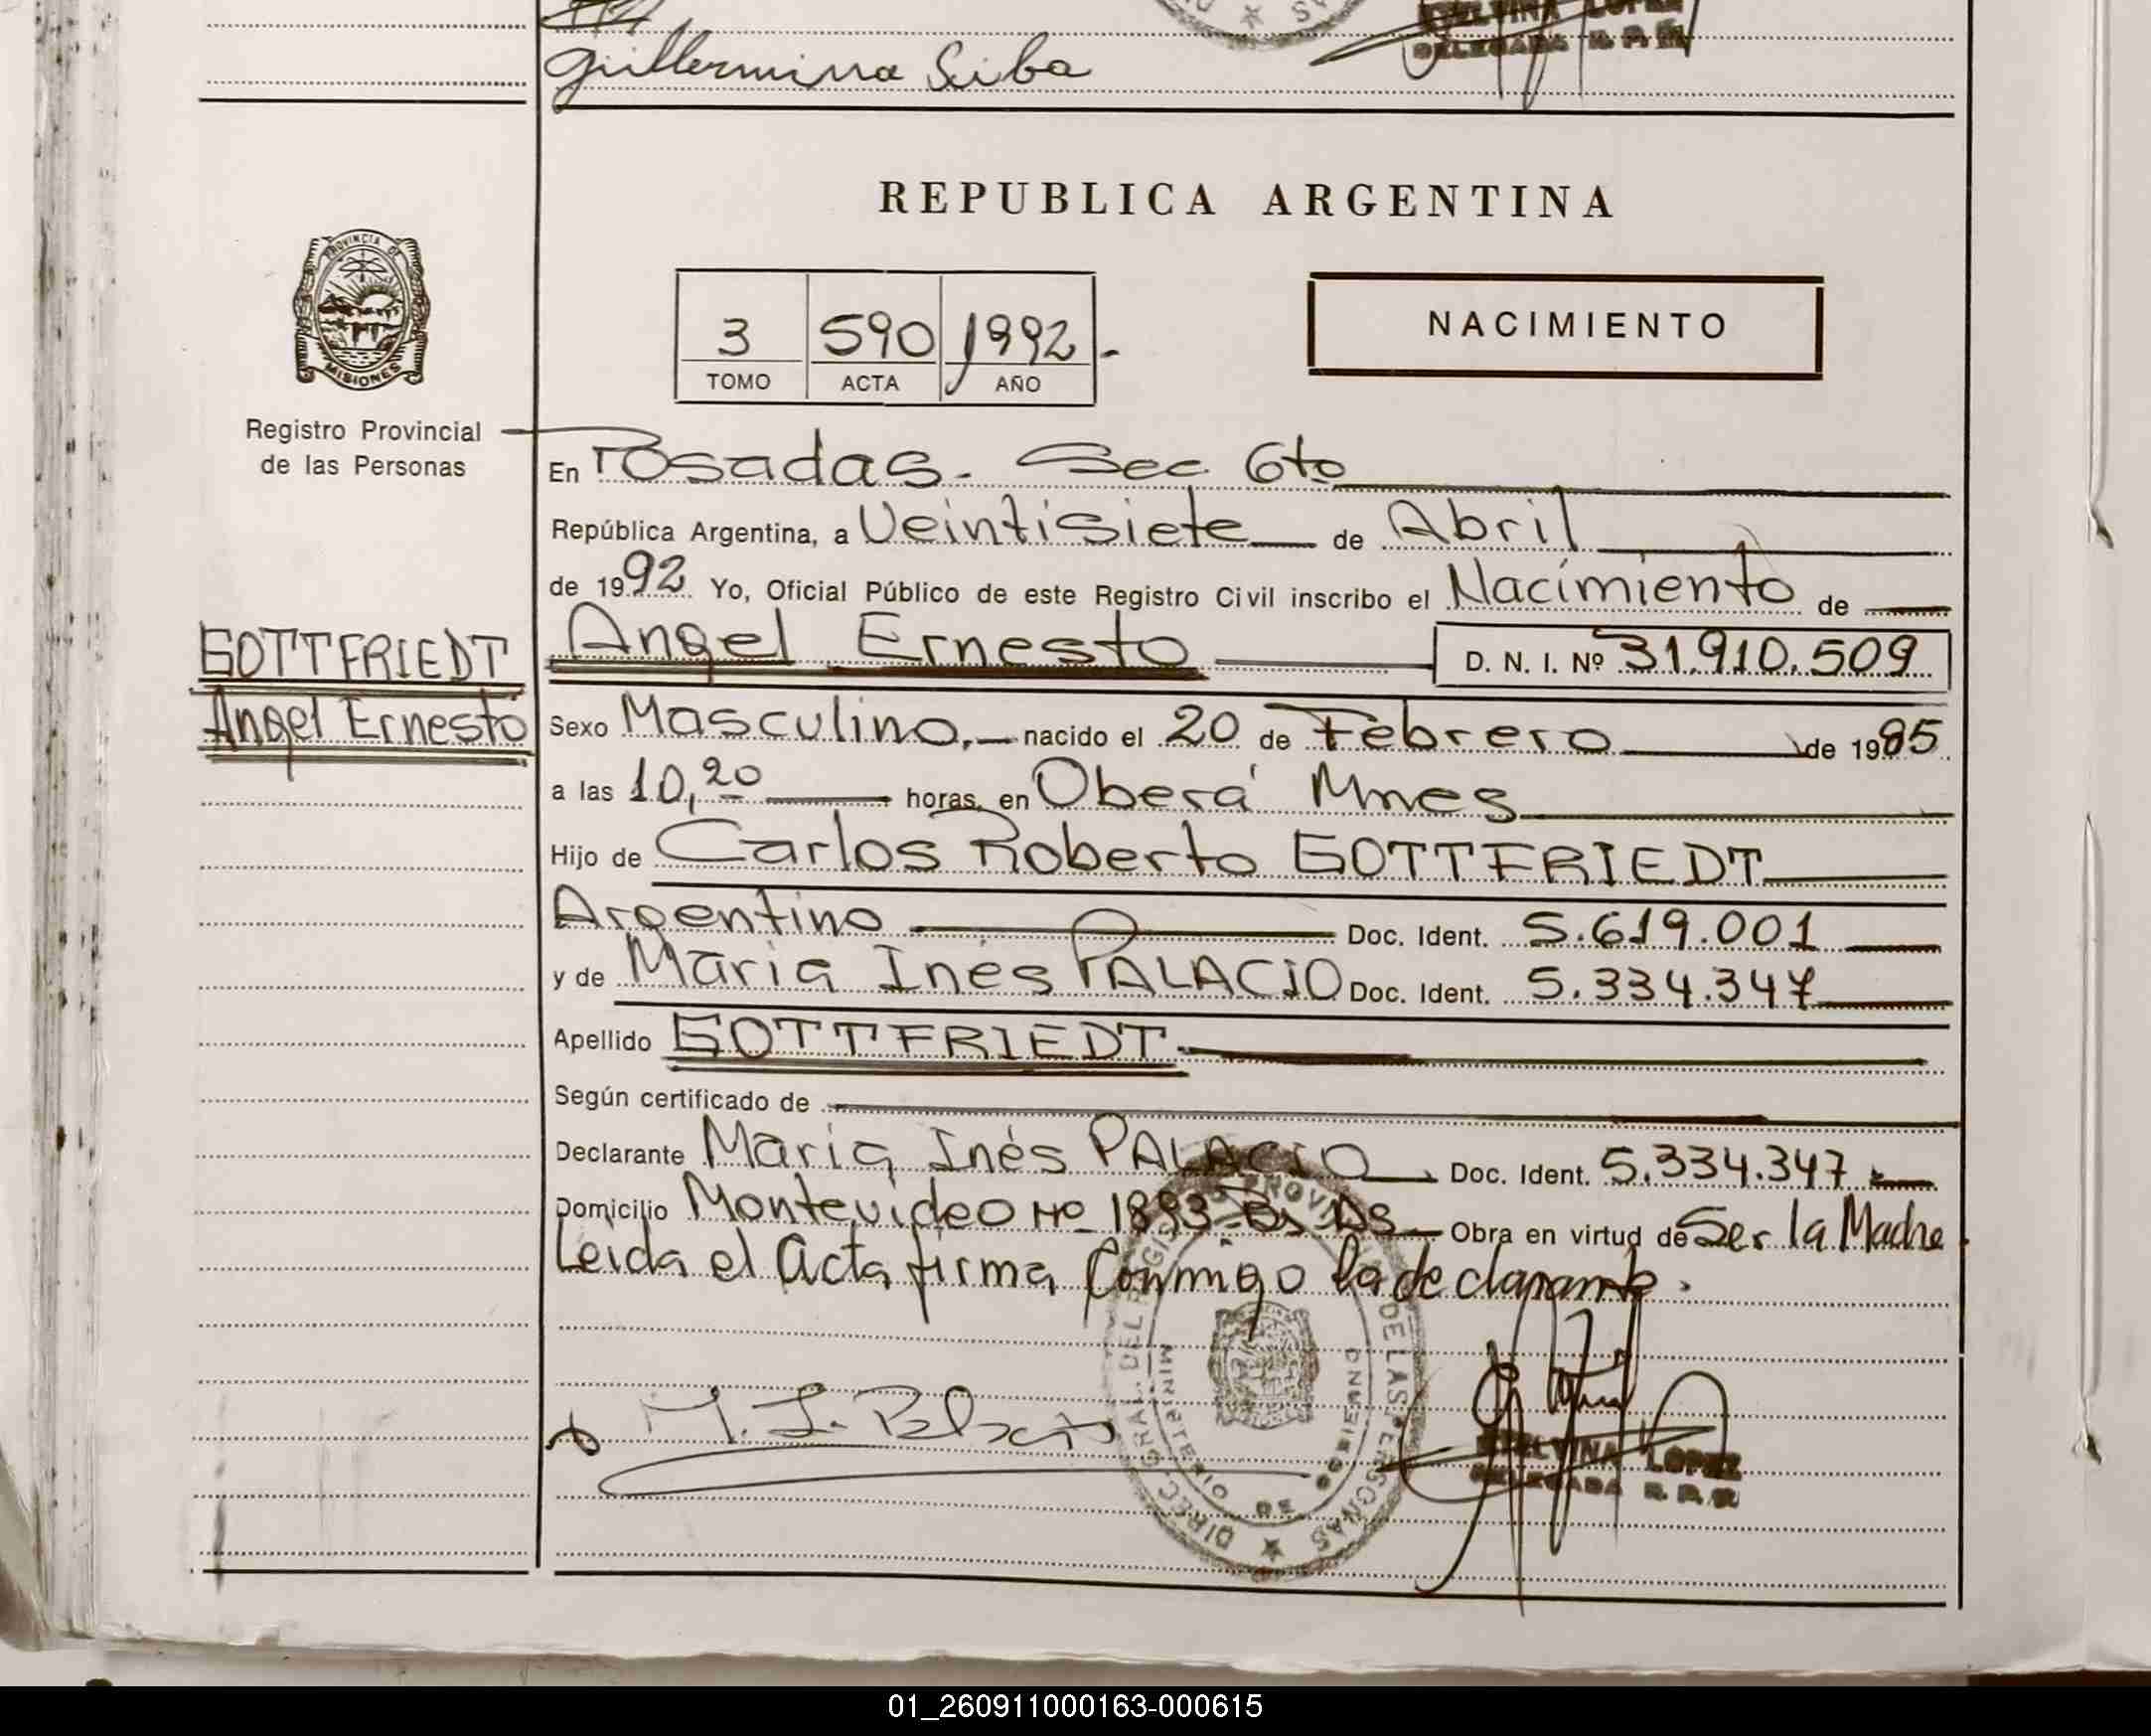 Guillermina Seiba
DELEGADA R. P. P.
REPUBLICA ARGENTINA
PROVINCIA DE
MISIONES
3 590 1992 -
TOMO ACTA AÑO
NACIMIENTO
Registro Provincial
de las Personas
En Posadas. Sec 6to
República Argentina, a Veintisiete de Abril
de 1992 Yo, Oficial Público de este Registro Civil inscribo el Nacimiento de
GOTTFRIEDT
Angel Ernesto
Angel Ernesto D. N. I. Nº 31.910.509
Sexo Masculino. nacido el 20 de Febrero de 1985
a las 10,20 horas, en Oberá Mnes
Hijo de Carlos Roberto GOTTFRIEDT
Argentino Doc. Ident. 5.619.001
y de Maria Inés PALACIO Doc. Ident. 5.334.347
Apellido GOTTFRIEDT
Según certificado de
Declarante Maria Inés PALACIO Doc. Ident. 5.334.347
Domicilio Montevideo Nº 1893 Bs As Obra en virtud de Ser la Madre
Leida el Acta firma Conmigo la declarante.
DIREC. GRAL. DEL REGISTRO PROVINCIAL DE LAS PERSONAS
MINISTERIO DE GOBIERNO
ETELVINA LOPEZ
DELEGADA R. P. P.
01_260911000163-000615